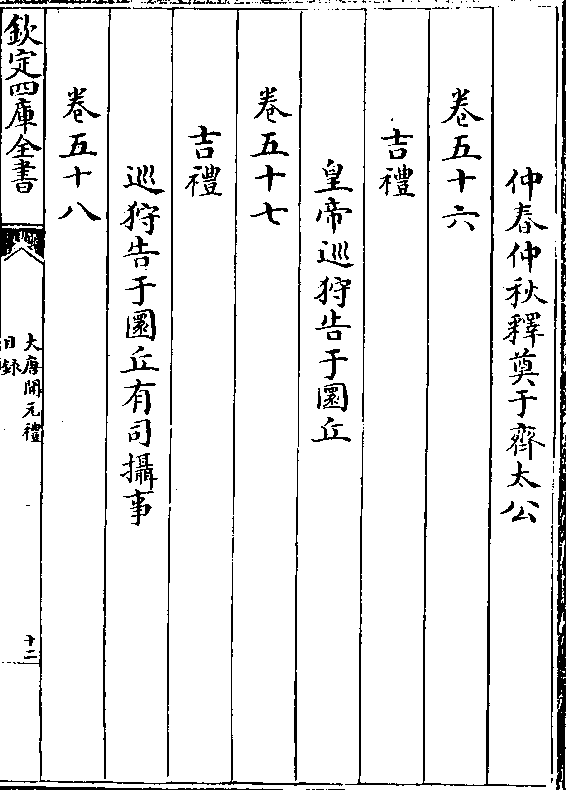 仲春仲秋釋奠于齊太公
卷五十六
吉禮
皇帝巡狩告于圜丘
卷五十七
吉禮
巡狩告于圜丘有司攝事
卷五十八
欽定四庫全書
大唐開元禮
目録
十二